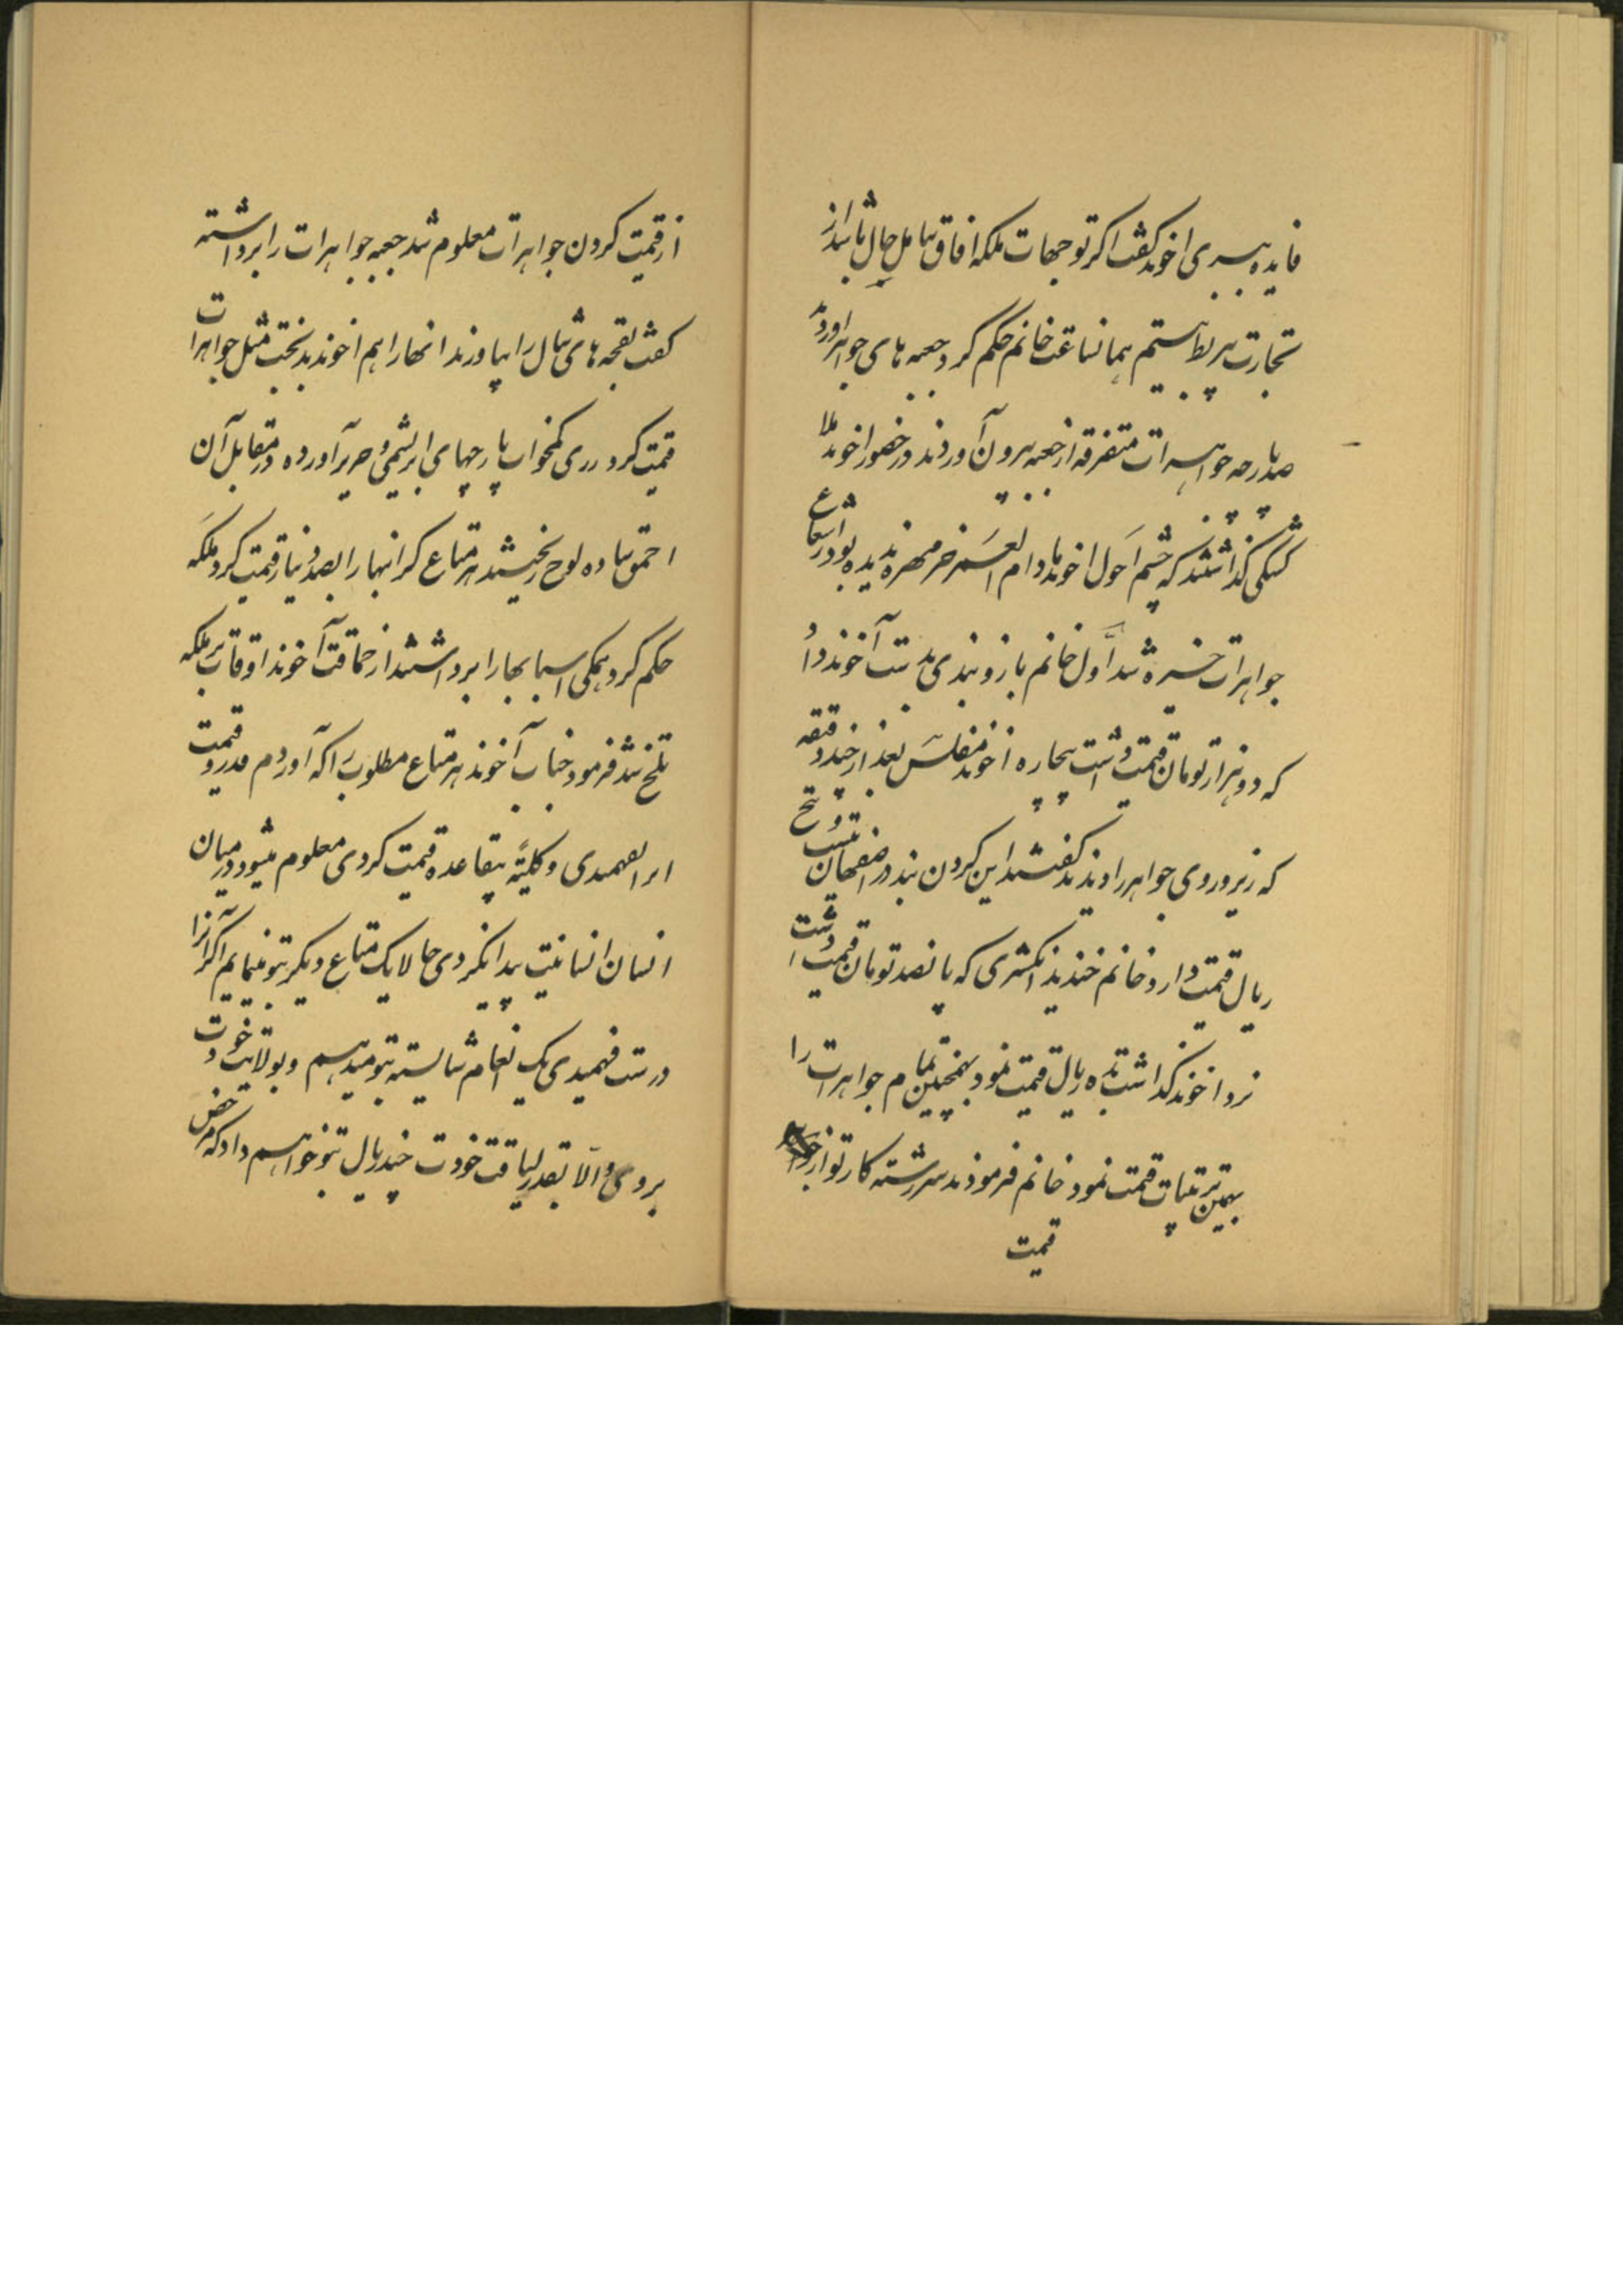 فایده ببری اخوند گفت اگر توجهات ملکه افاق شامل حال باشد از
تجارت بیربط نیستم همانساعت خانم حکم کرد جعبه های جواهر اوردند
صد پارچه جواهرات متفرقه از جعبه بیرون آوردند در حضور اخوند ملا
گذاشتند که چشم احول اخوند مادام العمر خر مهره ندیده بود در شعاع
جواهرات خیره شد اول خانم بازوبندی بدست آخوند داد
که دو هزار تومان قیمت داشت بیچاره اخوند مفلس بعد از چند دقیقه
که زیر و روی جواهر را دیدند گفتند این گردن بند در اصفهان بیست و پنج
ریال قیمت دارد خانم خندید انگشتری که پانصد تومان قیمت داشت
نزد اخوند گذاشت بده ریال قیمت نمود بهمچنین تمام جواهرات را
بهمین ترتیبات قیمت نمود خانم فرمودند سررشته کار تو از
قیمت
از قیمت کردن جواهرات معلوم شد جعبه جواهرات را برداشته
گفت بقچه های شال را بیاورند انها را هم اخوند بدبخت مثل جواهرات
قیمت کرد زری کمخواب پارچهای ابریشمی و حریر آورده در مقابل آن
احمق ساده لوح ریختند هر متاع گرانبها را بصد دینار قیمت کرد ملکه
حکم کرد همگی اسبابها را برداشتند از حماقت آخوند اوقات ملکه
تلخ شد فرمود جناب آخوند هر متاع مطلوب را که آوردم قدر و قیمت
انرا نفهمیدی و کلیتة بیقاعده قیمت کردی معلوم میشود در میان
انسان انسانیت پیدا نکردی حالا یک متاع دیگر بتو مینمایم اگر آنرا
درست فهمیدی یک انعام شایسته بتو میدهم و بولایت خودت
بروی و الا بقدر لیاقت خودت چند ریال بتو خواهم داد که مرخص